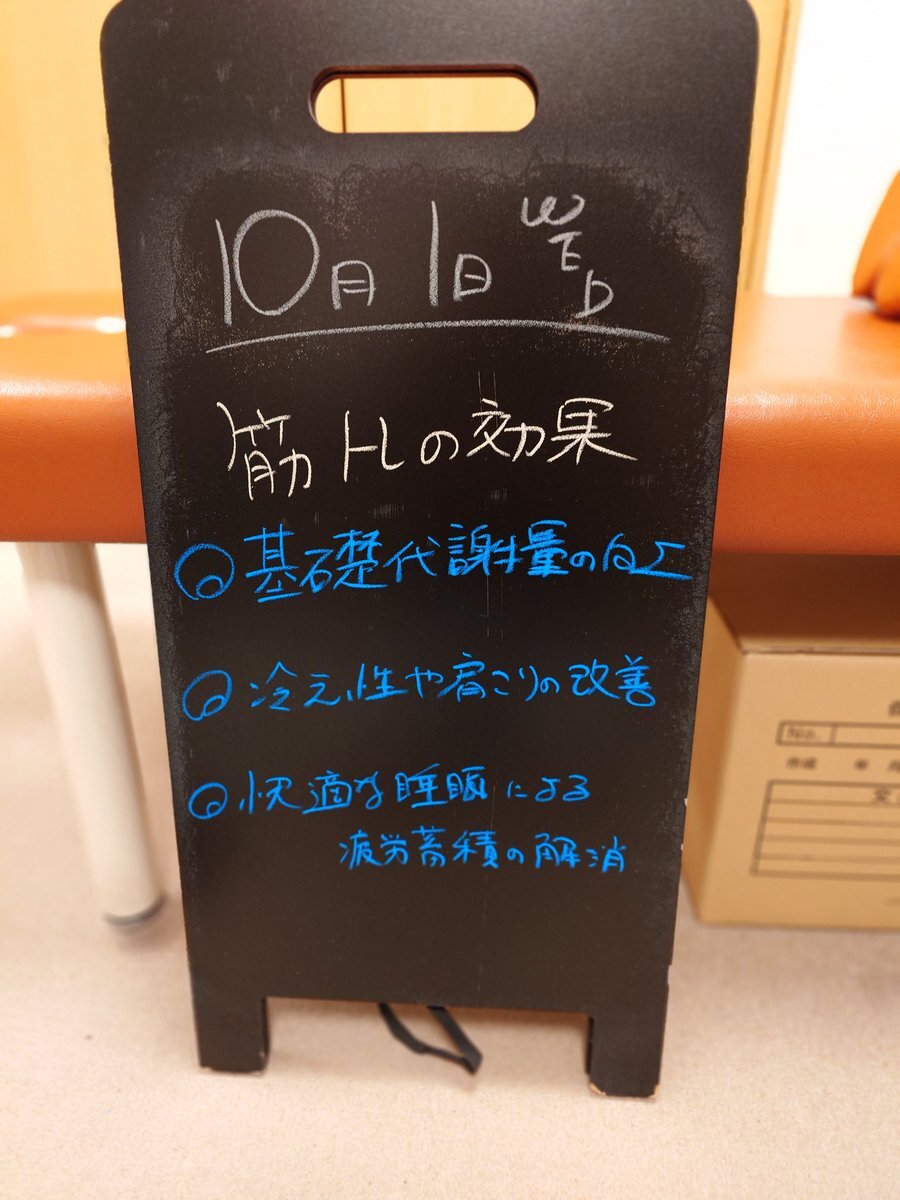 10月1日 WED
筋トレの効果
◎基礎代謝量の向上
◎冷え性や肩こりの改善
◎快適な睡眠による
疲労蓄積の解消
No.